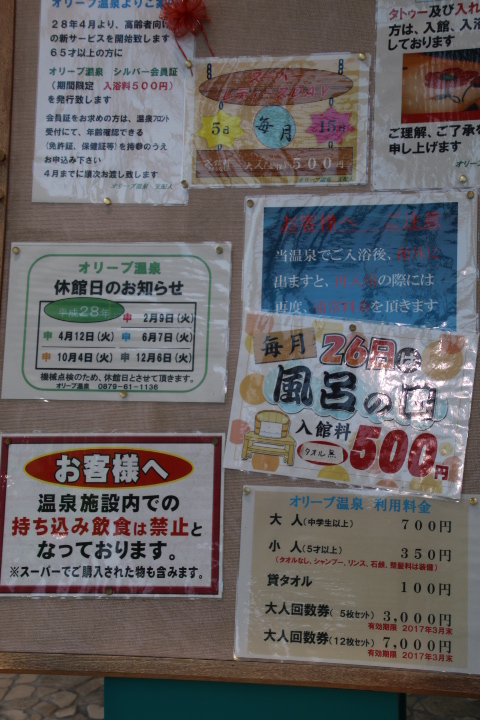 オリーブ温泉よりご
28年4月より、高齢者向け
の新サービスを開始致します
65才以上の方に
オリーブ温泉 シルバー会員証
(期間限定 入浴料500円)
を発行致します
会員証をお求めの方は、温泉フロント
受付にて、年齢確認できる
(免許証、保健証等)を持参のうえ
お申込み下さい
4月までに順次お渡し致します
オリーブ温泉 支配人
スーパー
5日
毎月
15日
大人
500円
タトゥー及び入れ
方は、入館、入浴
しております
ご理解、ご了承を
申し上げます
オリーブ
オリーブ温泉
休館日のお知らせ
平成28年
申 2月9日(火)
申 4月12日(火) 申 6月7日(火)
申 10月4日(火) 申 12月6日(火)
機械点検のため、休館日とさせて頂きます。
オリーブ温泉 0879-61-1136
お客様へ
当温泉でご入浴後、
出ますと、再入館の際には
再度、
を頂きます
毎月26日は
風呂の日
入館料
タオル無
500円
お客様へ
温泉施設内での
持ち込み飲食は禁止と
なっております。
※スーパーでご購入された物も含みます。
オリーブ温泉 利用料金
大人(中学生以上) 700円
小人(5才以上) 350円
(タオルなし、シャンプー、リンス、石鹸、整髪料は装備)
貸タオル 100円
大人回数券(5枚セット) 3,000円
有効期限 2017年3月末
大人回数券(12枚セット) 7,000円
有効期限 2017年3月末